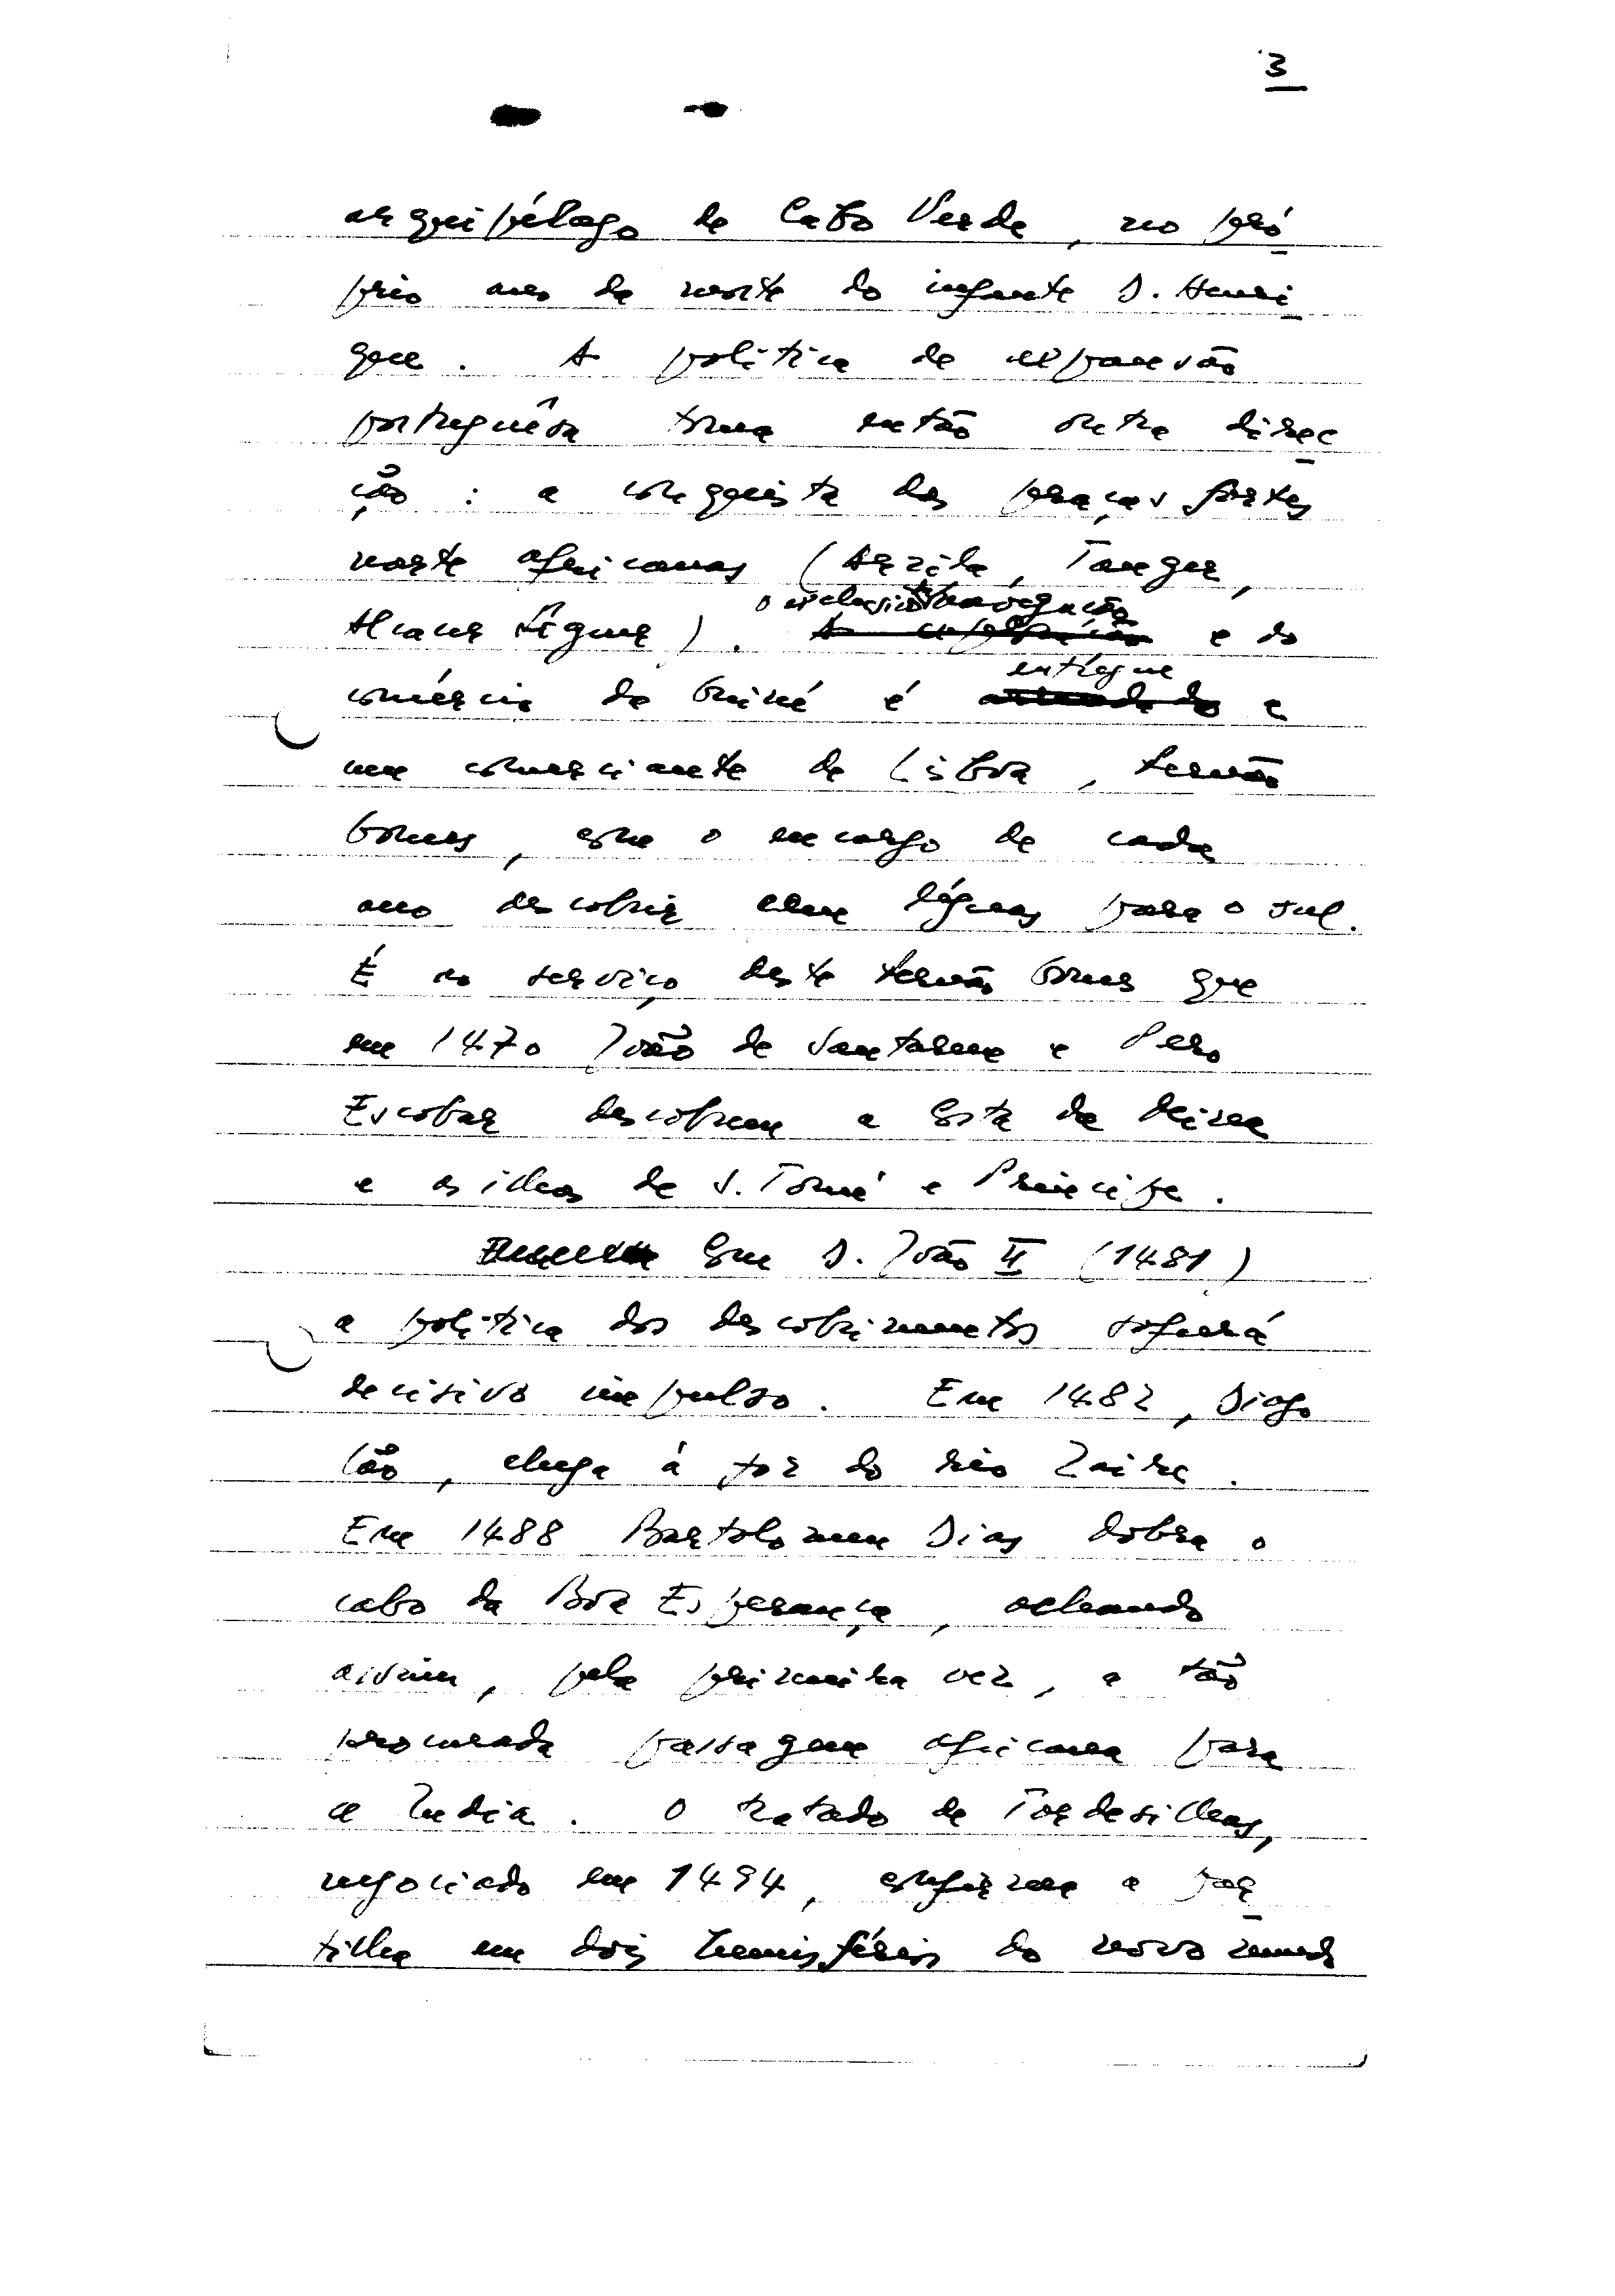 3
arquipélago de Cabo Verde, no pró
prio ano da morte do infante D. Henri
que. A politica de expansão
portuguêsa toma então outra direc
ção : a conquista das praças fortes
norte africanas (Arzila, Tanger,
o exclusivo da navegação
Alcacer Séguer). A exploração e do
entregue
comércio da Guiné é arrendado a
um comerciante de Lisboa, Fernão
Gomes, com o encargo de cada
ano descobrir cem léguas para o sul.
É ao serviço deste Fernão Gomes que
em 1470 João de Santarem e Pero
Escobar descobrem a Costa da Mina
e as ilhas de S. Tomé e Principe.
Com D. João II (1481)
a politica dos descobrimentos sofrerá
decisivo impulso. Em 1482, Diogo
Cão, chega à foz do rio Zaire.
Em 1488 Bartolomeu Dias dobra o
cabo da Boa Esperança, achando
assim, pela primeira vez, a tão
procurada passagem africana para
a India. O tratado de Tordesilhas,
negociado em 1494, confirma a par
tilha em dois hemisférios do novo mundo